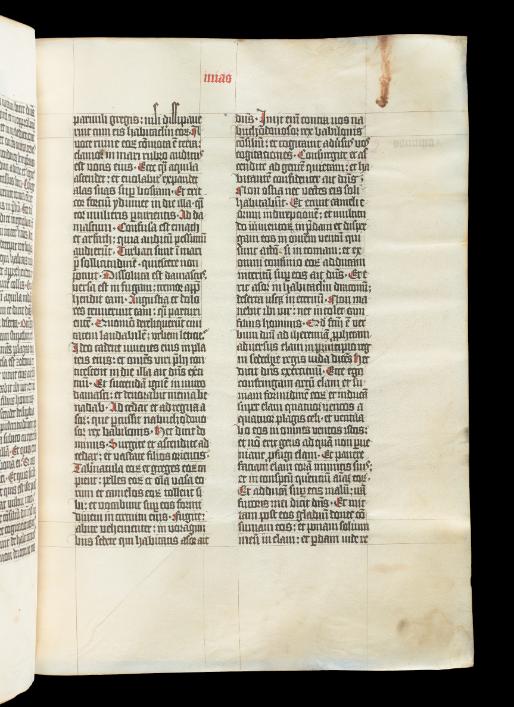 mias
paruuli gregis: nisi dissipaue
rint cum eis habitaclm eoꝝ. A
voce ruine eoꝝ cōmota ē terra:
clamor in mari rubro auditus
est vocis eius. Ecce q̄i aquila
ascendet et euolabit: et expandet
alas suas sup̄ bosram. Et erit
cor fortiū ydumee in die illa: q̄i
cor mulieris parturientis. Ad da
mascum. Confusa est emath
et arfath: quia auditū pessimū
audierūt. Turbati sunt ī mari
p̄ sollicitudine: quiescere non
potuit. Dissoluta est damascus:
versa est in fugam: tremor app̄
hendit eam. Angustia et dolo
res tenuerunt eam: q̄i parturi
entē. Quomō dereliquerūt ciui
tatem laudabilē: vrbem leticie.
Ideo cadent iuuenes eius in pla
teis eius: et omēs viri p̄lij con
ticescent in die illa ait dn̄s exer
cituū. Et succendā ignē in muro
damasci: et deuorabit menia be
nadab. Ad cedar et ad regna a
sor: que p̄cussit nabuchodono
sor rex babilonis. Hec dicit do
minus. Surgite et ascendite ad
cedar: et vastate filios orientis.
Tabernacula eoꝝ et greges eoꝝ ca
pient: pelles eoꝝ et oīa vasa eo
rum et camelos eoꝝ tollent si
bi: et vocabunt sup̄ eos formi
dinem in circuitu. Fugite:
abite vehementer: in voragini
bus sedete qui habitatis asor ait
dn̄s. Inijt enī contra vos na
buchodonosor rex babilonis
consiliū: et cogitauit aduersū vos
cogitationes. Consurgite et as
cendite ad gentē quietam: et ha
bitantē confidenter ait dn̄s.
Non ostia nec vectes eis: soli
habitabūt. Et erunt cameli e
orum in direptionē: et multitu
do iumentoꝝ in p̄dam: et disper
gam eos in omnem ventū qui
sunt attōsi in comam: et ex
omni confinio eoꝝ adducam
interitū sup̄ eos ait dn̄s. Et e
rit asor in habitaclm draconū:
deserta vsqꝫ in eternū. Non ma
nebit ibi vir: nec incolet eam
filius hominis. Qd̄ factū ē ver
bum dn̄i ad iheremiā prophetam
aduersus elam in principio reg
ni sedechie regis iuda dicēs. Hec
dicit dn̄s exercituū. Ecce ego
confringam arcū elam: et su
mam fortitudinē eoꝝ: et inducā
super elam quatuor ventos a
quatuor plagis celi: et ventila
bo eos in omnes ventos istos:
et nō erit gens ad quā non p̄ue
niant p̄fugi elam. Et pauere
faciam elam corā inimicis suis:
et in conspectu querentiū aīam eoꝝ.
Et adducā sup̄ eos malū: iram
furoris mei dicit dn̄s. Et mit
tam post eos gladiū donec cō
sumam eos: et ponam solium
meū in elam: et p̄dam inde re